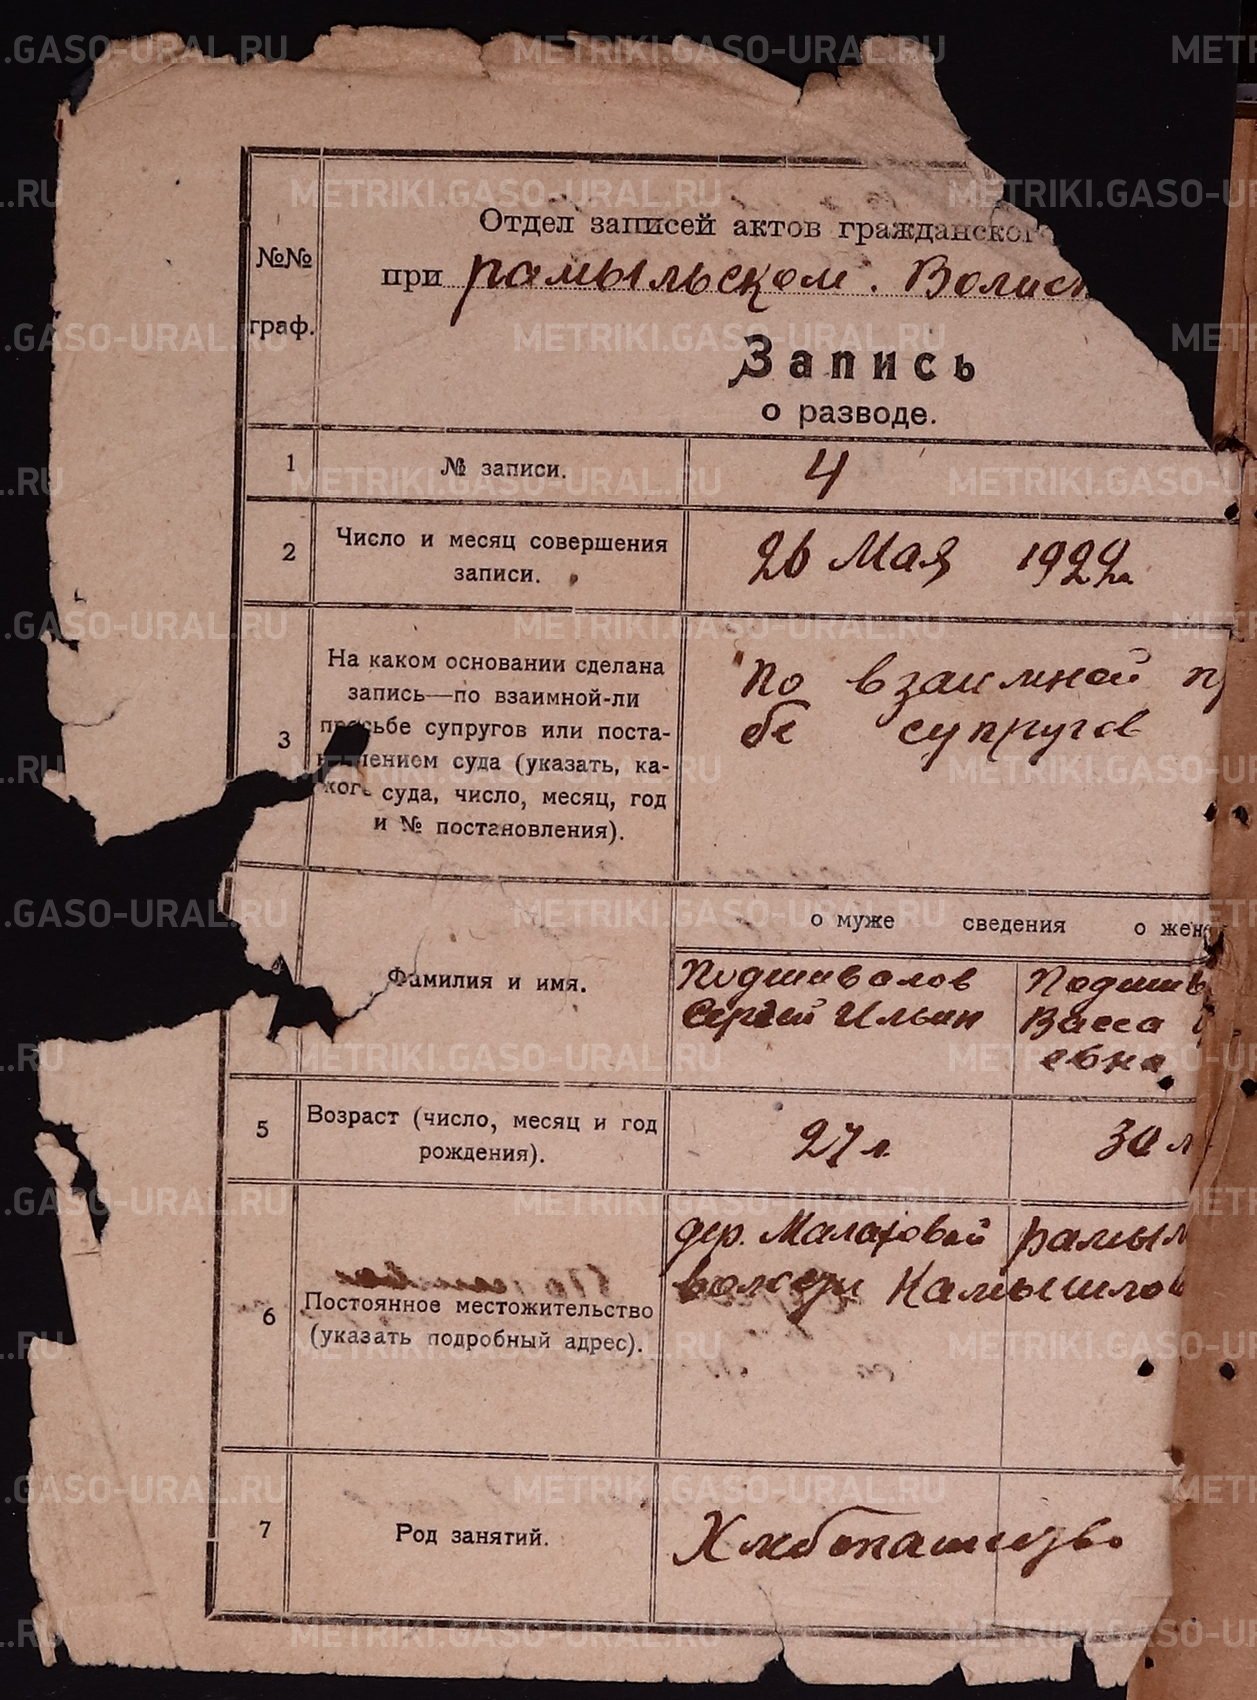 Отдел записей актов гражданског
№№
при рамыльском. Волист
граф.
Запись
о разводе.
1 № записи. 4
2 Число и месяц совершения 26 Мая 1922 г.
записи.
На каком основании сделана
запись—по взаимной-ли По взаимной пр
просьбе супругов или поста- бе супругов
3
новлением суда (указать, ка-
кого суда, число, месяц, год
и № постановления).
о муже сведения о жен
Фамилия и имя. Подшивалов Подшив
Сергей Ильин Васса
евна
5 Возраст (число, месяц и год 27 л 30 л
рождения).
дер. Малаховой рамыл
волости Камышлов
6 Постоянное местожительство
(указать подробный адрес).
7 Род занятий. Хлебопашество
METRIKI.GASO-URAL.RU